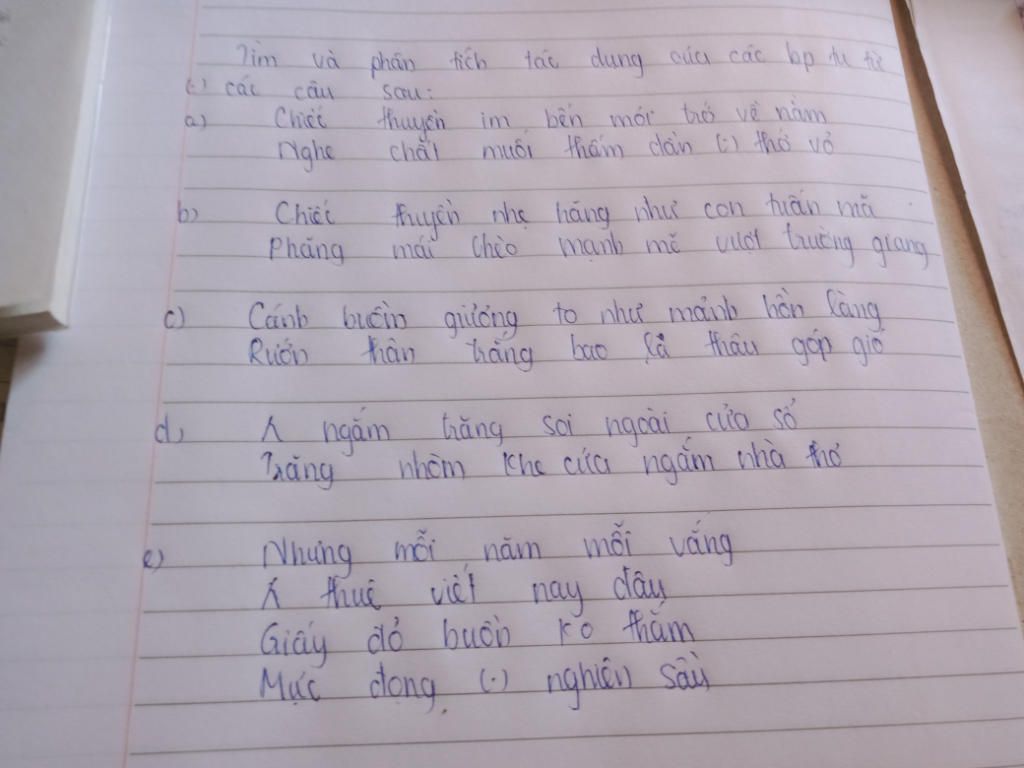 Tìm và phân tích tác dụng của các bp tu từ
(.) các câu sau:
a) Chiếc thuyền im bến mỏi trở về nằm
Nghe chất muối thấm dần (.) thớ vỏ
b) Chiếc thuyền nhẹ hăng như con tuấn mã
Phăng mái chèo mạnh mẽ vượt trường giang
c) Cánh buồm giương to như mảnh hồn làng
Rướn thân trắng bao la thâu góp gió
d, ngắm trăng soi ngoài cửa sổ
Trăng nhòm khe cửa ngắm nhà thơ
e) Nhưng mỗi năm mỗi vắng
thuê viết nay đâu
Giấy đỏ buồn ko thắm
Mực đọng (.) nghiên sầu